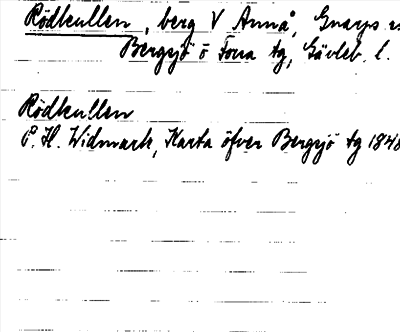 Rödkullen, berg V Annå, Gnarps
Bergsjö o Forsa tg, Gävleb. l.
Rödkullen
P. H. Widmark, Karta öfver Bergsjö tg 1848